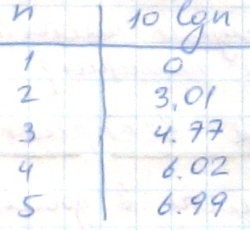 n 10 lgn
1 0
2 3,01
3 4.77
4 6.02
5 6.99